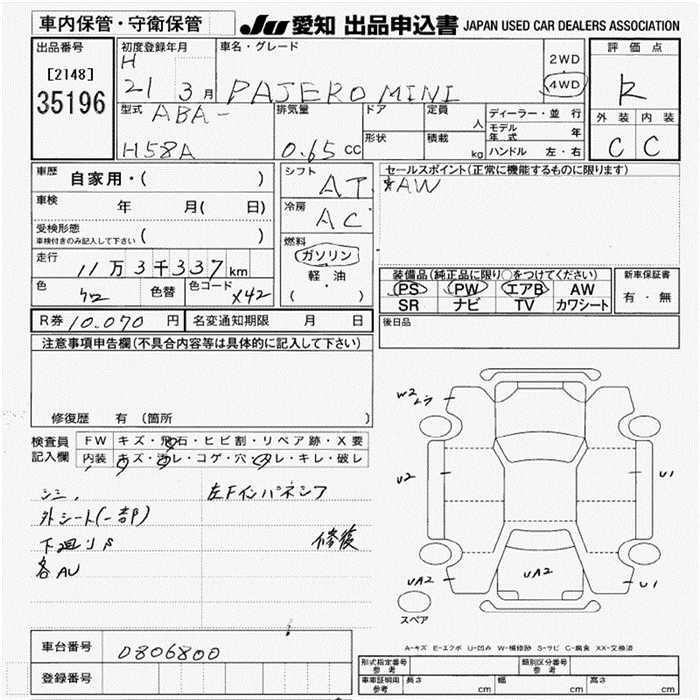 車内保管・守衛保管
JU 愛知 出品申込書 JAPAN USED CAR DEALERS ASSOCIATION
出品番号
[2148]
35196
初度登録年月
H
21 3 月
車名・グレード
PAJERO MINI
2WD
4WD
評価点
R
外装 内装
C C
型式
ABA-
H58A
排気量
0.65 cc
ドア
定員
人
形状
積載
kg
ディーラー・並行
モデル年式 年
ハンドル 左・右
車歴
自家用・( )
車検
年 月( 日)
受検形態
車検付きのみ記入して下さい ( )
走行
11万3千337 km
色
色替
色コード
X42
シフト
AT
冷房
AC
燃料
ガソリン
軽・油
( ・ )
セールスポイント(正常に機能するものに限ります)
*AW
装備品(純正品に限り○をつけてください)
PS PW エアB AW
SR ナビ TV カワシート
新車保証書
有・無
R券 10.070 円
名変通知期限 月 日
後日品
注意事項申告欄(不具合内容等は具体的に記入して下さい)
修復歴 有 (箇所 )
検査員
記入欄
FW キズ・飛石・ヒビ割・リペア跡・X要
内装 キズ・汚レ・コゲ・穴・スレ・キレ・破レ
シミ、
外シート(一部)
下廻りS
各AU
左Fインパネシワ
修復
W2
U2
UA2
UA2
U1
U1
スペア
A-キズ E-エクボ U-凹み W-補修跡 S-サビ C-腐食 XX-交換済
車台番号
0806800
登録番号
形式指定番号
参考
類別区分番号
参考
車庫証明用
参考
長さ cm
幅 cm
高さ cm